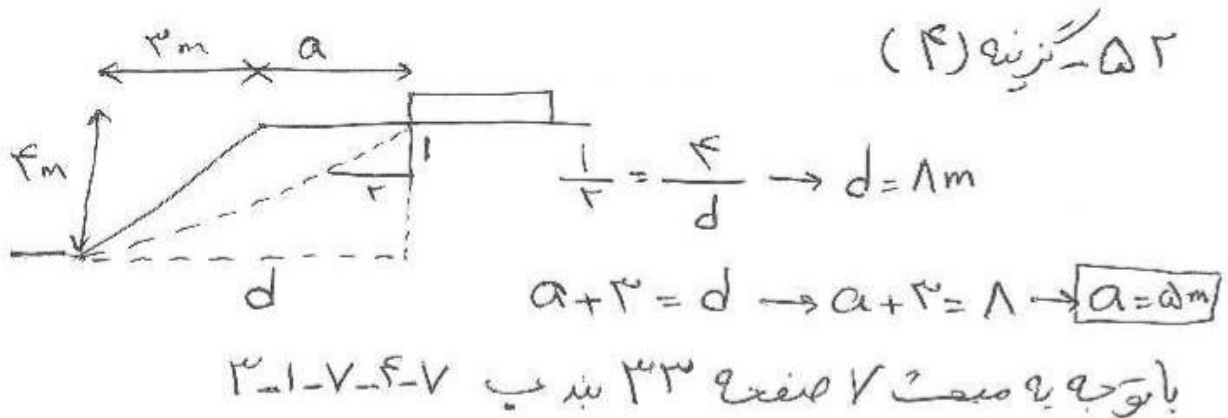 ۵۲-گزینه (۴)
۳m
a
۴m
۱
۲
d
۱/۲ = ۴/d → d = ۸m
a + ۳ = d → a + ۳ = ۸ → a = ۵m
با توجه به مبحث ۷ صفحه ۳۳ بند ب ۷-۴-۷-۱-۳